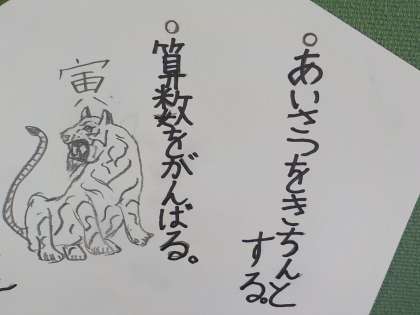 ○あいさつをきちんと
する。
○算数をがんばる。
寅